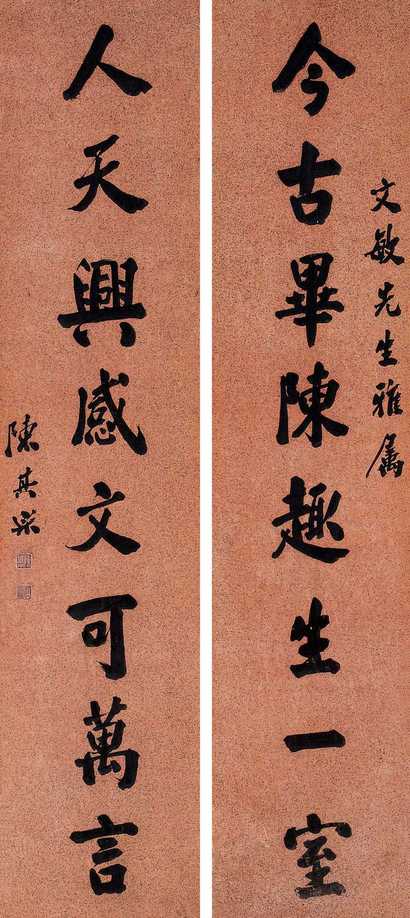 文敏先生雅属
今古畢陳趣生一室
人天興感文可萬言
陳其采